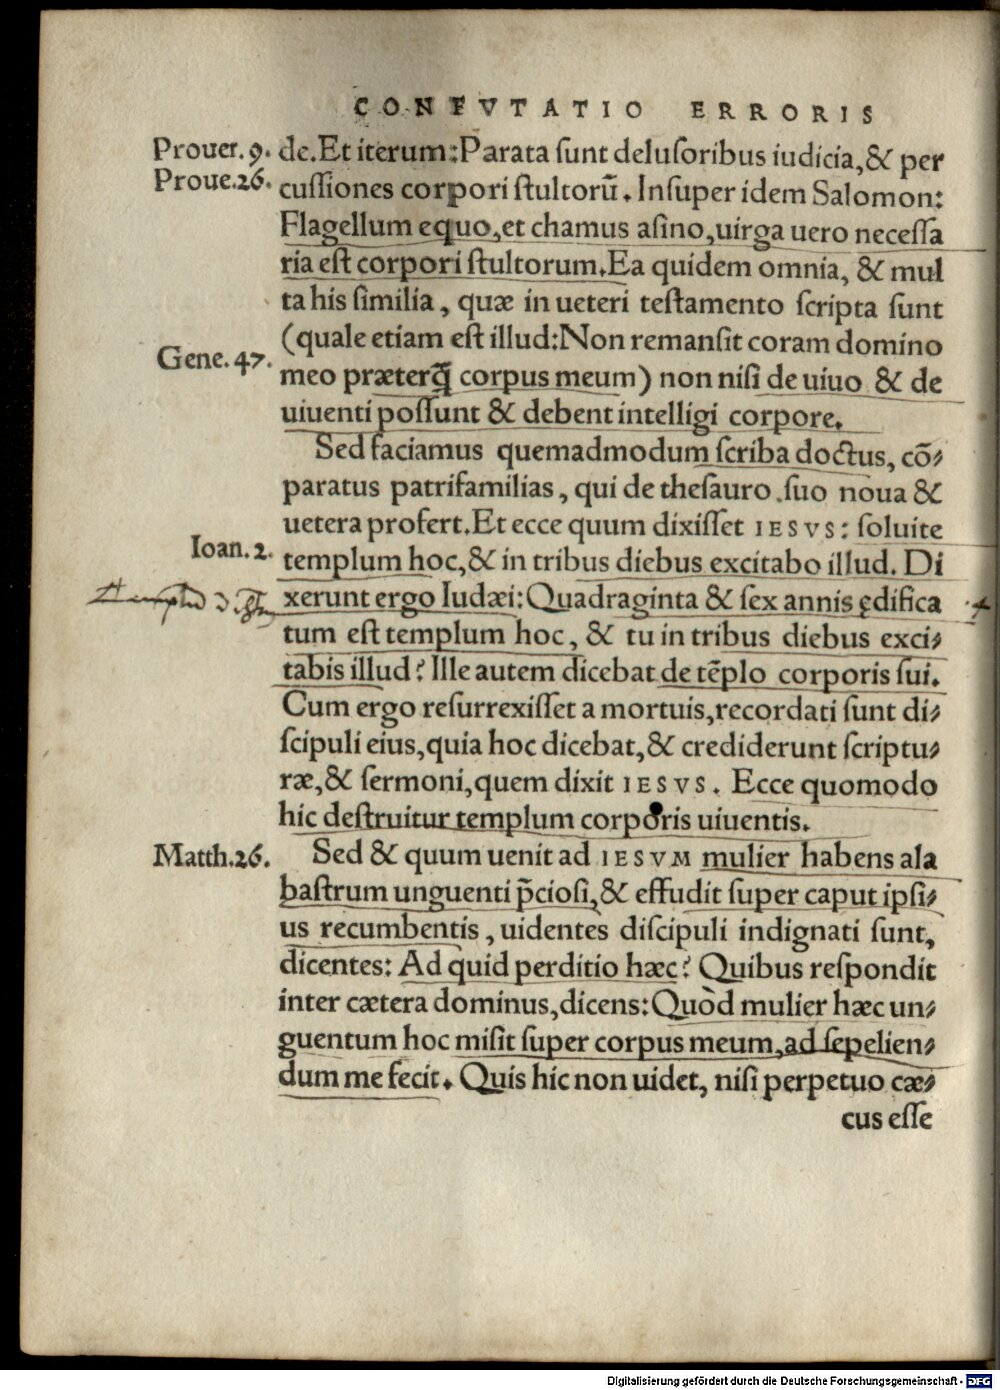 CONFVTATIO ERRORIS
Prouer. 9. de. Et iterum: Parata sunt delusoribus iudicia, & per
Proue. 26. cussiones corpori stultorū. Insuper idem Salomon:
Flagellum equo, et chamus asino, uirga uero necessa
ria est corpori stultorum. Ea quidem omnia, & mul
ta his similia, quæ in ueteri testamento scripta sunt
(quale etiam est illud: Non remansit coram domino
Gene. 47. meo præterq̃ corpus meum) non nisi de uiuo & de
uiuenti possunt & debent intelligi corpore.
Sed faciamus quemadmodum scriba doctus, cō⸗
paratus patrifamilias, qui de thesauro suo noua &
uetera profert. Et ecce quum dixisset IESVS: soluite
Ioan. 2. templum hoc, & in tribus diebus excitabo illud. Di
xerunt ergo Iudæi: Quadraginta & sex annis ędifica
tum est templum hoc, & tu in tribus diebus exci⸗
tabis illud? Ille autem dicebat de tēplo corporis sui.
Cum ergo resurrexisset a mortuis, recordati sunt di⸗
scipuli eius, quia hoc dicebat, & crediderunt scriptu⸗
ræ, & sermoni, quem dixit IESVS. Ecce quomodo
hic destruitur templum corporis uiuentis.
Matth. 26. Sed & quum uenit ad IESVM mulier habens ala
bastrum unguenti p̄ciosi, & effudit super caput ipsi⸗
us recumbentis, uidentes discipuli indignati sunt,
dicentes: Ad quid perditio hæc? Quibus respondit
inter cætera dominus, dicens: Quòd mulier hæc un⸗
guentum hoc misit super corpus meum, ad sepelien⸗
dum me fecit. Quis hic non uidet, nisi perpetuo cæ⸗
cus esse
Digitalisierung gefördert durch die Deutsche Forschungsgemeinschaft - DFG